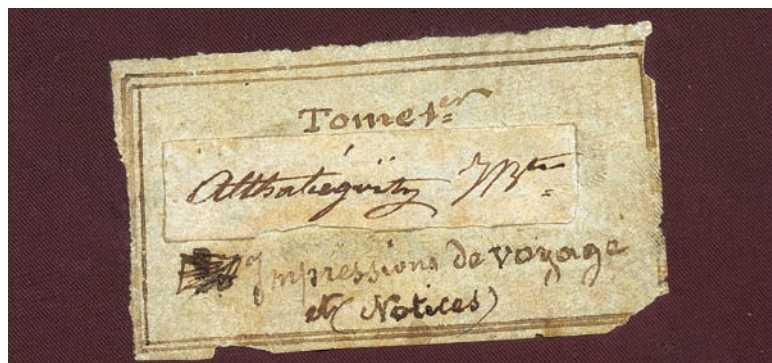 Tome 1er
Althabégoïty JBte
Impressions de voyage
et (Notices)